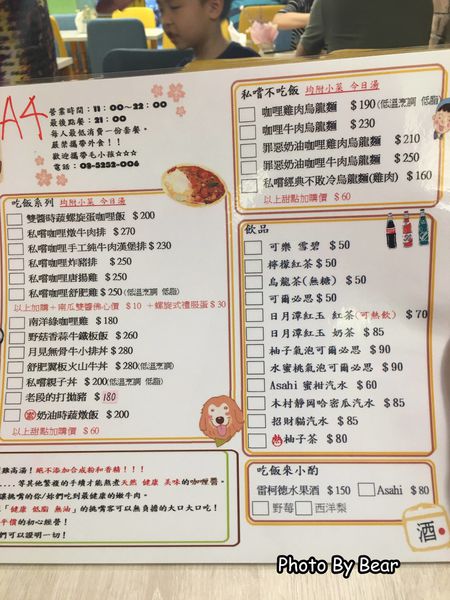 A4
營業時間：11：00～22：00
最後點餐：21：00
每人最低消費一份套餐。
嚴禁攜帶外食！！
歡迎攜帶毛小孩☆☆☆
電話：03-5252-006
吃飯系列 均附小菜 今日湯
雙醬時蔬螺旋蛋咖哩飯 $200
私嚐咖哩燉牛肉排 $270
私嚐咖哩手工純牛肉漢堡排 $230
私嚐咖哩炸豬排 $250
私嚐咖哩唐揚雞 $250
私嚐咖哩舒肥雞 $250(低溫烹調 低脂)
以上加購＋南瓜雙醬佛心價 $10 ＋螺旋式禮服蛋$30
南洋綠咖哩雞 $180
野菇香蒜牛鐵板飯 $260
月見無骨牛小排丼 $280
舒肥翼板火山牛丼 $280(低溫烹調)
私嚐親子丼 $200(低溫烹調 低脂)
老段的打拋豬 $180
奶油時蔬燉飯 $200
以上甜點加購 $60
私嚐不吃飯 均附小菜 今日湯
咖哩雞肉烏龍麵 $190(低溫烹調 低脂)
咖哩牛肉烏龍麵 $230
罪惡奶油咖哩雞肉烏龍麵 $210
罪惡奶油咖哩牛肉烏龍麵 $250
私嚐經典不敗冷烏龍麵(雞肉) $160
以上甜點加購 $60
飲品
可樂 雪碧 $50
檸檬紅茶 $50
烏龍茶(無糖) $50
可爾必思 $50
日月潭紅玉 紅茶(可熱飲) $70
日月潭紅玉 奶茶 $85
柚子氣泡可爾必思 $90
水蜜桃氣泡可爾必思 $90
Asahi 蜜柑汽水 $60
木村靜岡哈密瓜汽水 $85
招財貓汽水 $85
熱 柚子茶 $80
吃飯來小酌
雷柯德水果酒 $150 Asahi $80
野莓 西洋梨
酒
雞高湯！絕不添加合成粉和香精！！！
.....等其他繁複的手續才能熬煮天然 健康 美味的咖哩醬。
讓挑嘴的你/妳們吃到最健康的嫩牛肉。
「健康 低脂 無油」的挑嘴客可以無負擔的大口大口吃！
平價的初心經營！
們可以證明一切！
Photo By Bear